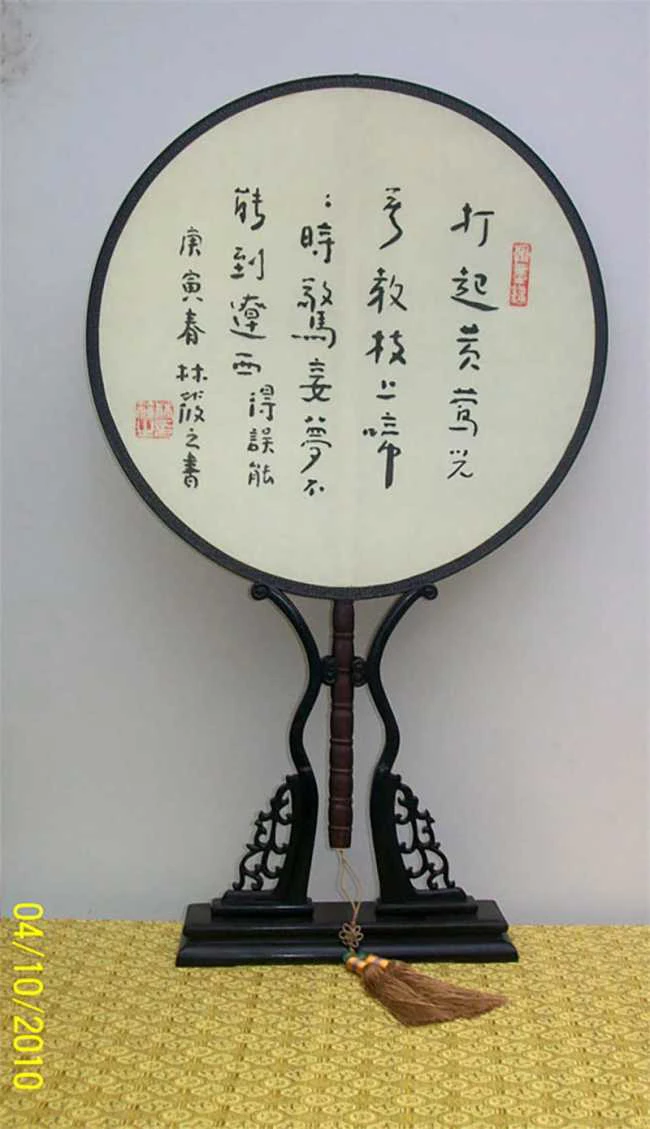 打起黄鶯児
莫教枝上啼
：時驚妾夢不
能到遼西 得誤能
庚寅春 林筱之書
04/10/2010